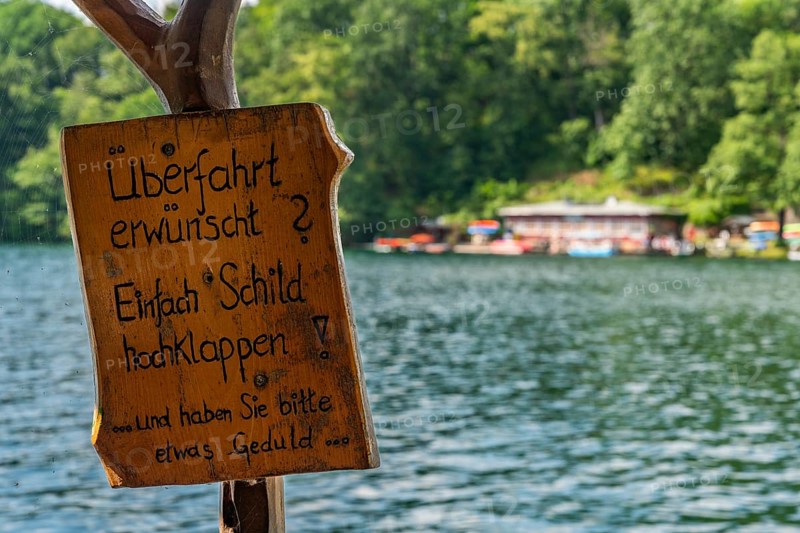 Überfahrt
erwünscht ?
Einfach Schild
hochklappen !
...und haben Sie bitte
etwas Geduld ...
PHOTO12